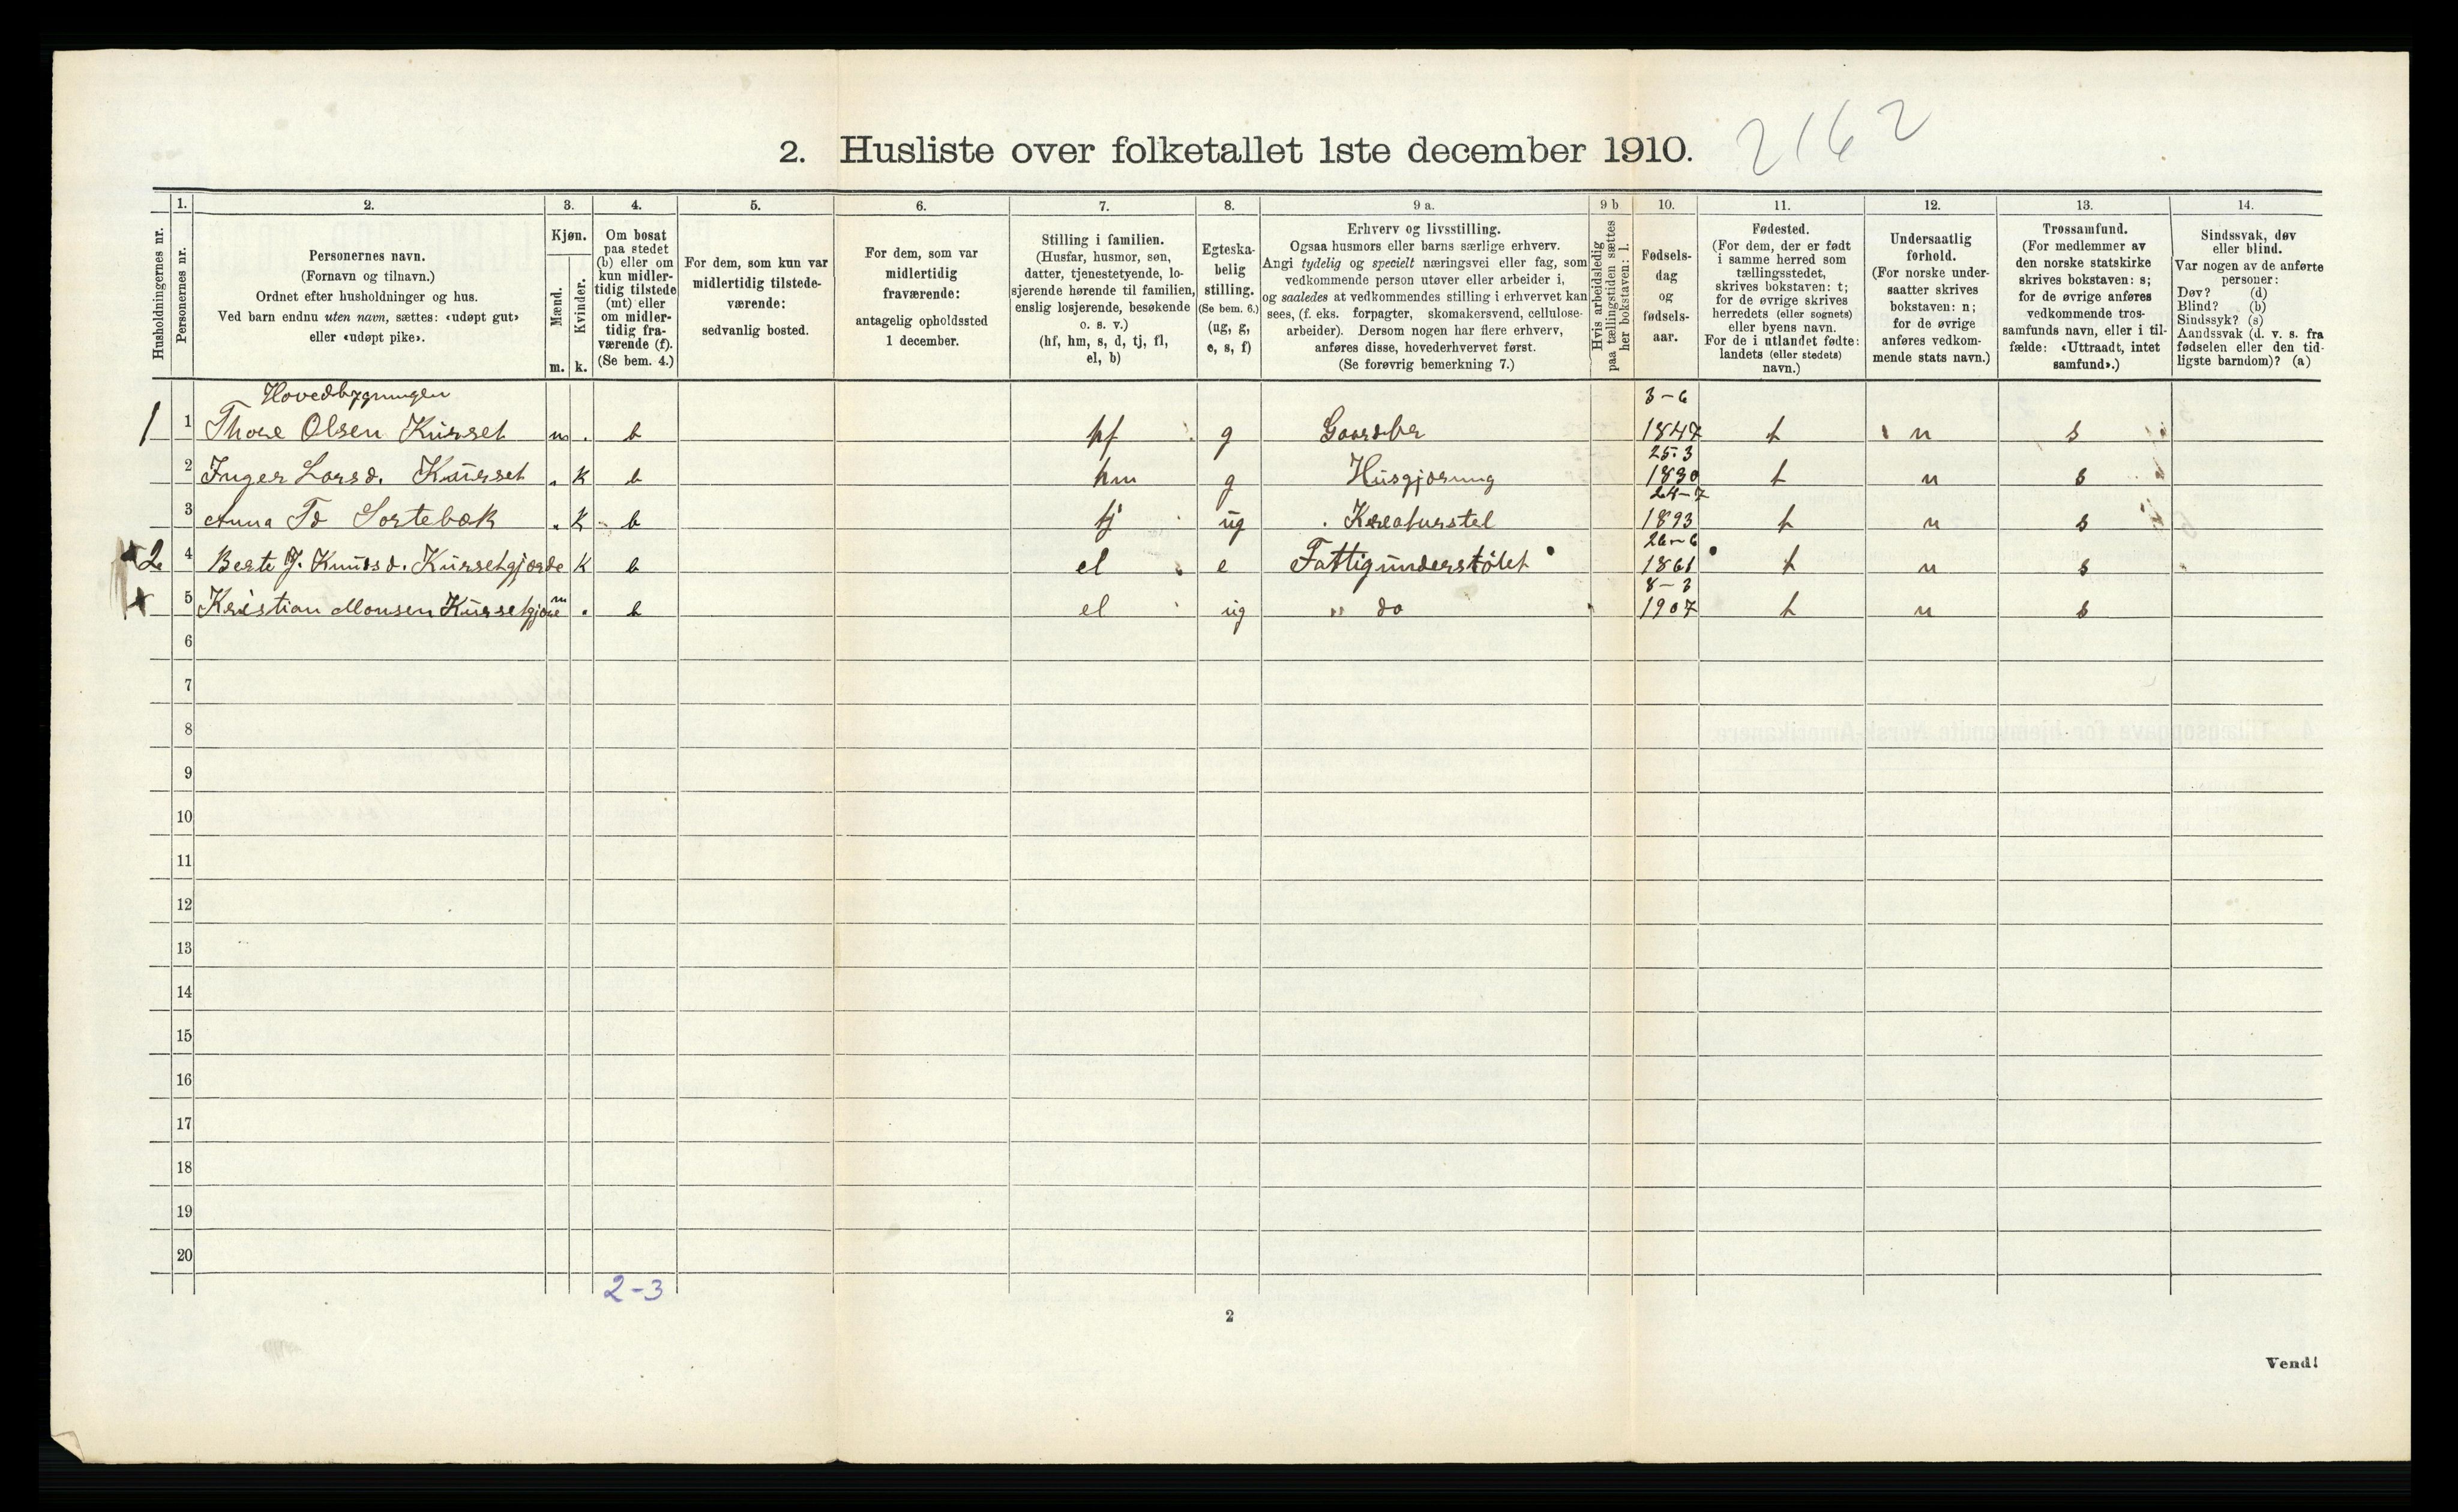 2162
2. Husliste over folketallet 1ste december 1910.
Husholdningernes nr.
1.
Personernes nr.
2.
Personernes navn.
(Fornavn og tilnavn.)
Ordnet efter husholdninger og hus.
Ved barn endnu uten navn, sættes: «udøpt gut»
eller «udøpt pike».
3.
Kjøn.
Mænd.
Kvinder.
m. k.
4.
Om bosat
paa stedet
(b) eller om
kun midler-
tidig tilstede
(mt) eller
om midler-
tidig fra-
værende (f).
(Se bem. 4.)
5.
For dem, som kun var
midlertidig tilstede-
værende:
sedvanlig bosted.
6.
For dem, som var
midlertidig
fraværende:
antagelig opholdssted
1 december.
7.
Stilling i familien.
(Husfar, husmor, søn,
datter, tjenestetyende, lo-
sjerende hørende til familien,
enslig losjerende, besøkende
o. s. v.)
(hf, hm, s, d, tj, fl,
el, b)
8.
Egteska-
belig
stilling.
(Se bem. 6.)
(ug, g,
e, s, f)
9 a.
Erhverv og livsstilling.
Ogsaa husmors eller barns særlige erhverv.
Angi tydelig og specielt næringsvei eller fag, som
vedkommende person utøver eller arbeider i,
og saaledes at vedkommendes stilling i erhvervet kan
sees, (f. eks. forpagter, skomakersvend, cellulose-
arbeider). Dersom nogen har flere erhverv,
anføres disse, hovederhvervet først.
(Se forøvrig bemerkning 7.)
9 b
Hvis arbeidsledig
paa tællingstiden sættes
her bokstaven: l.
10.
Fødsels-
dag
og
fødsels-
aar.
11.
Fødested.
(For dem, der er født
i samme herred som
tællingsstedet,
skrives bokstaven: t;
for de øvrige skrives
herredets (eller sognets)
eller byens navn.
For de i utlandet fødte:
landets (eller stedets)
navn.)
12.
Undersaatlig
forhold.
(For norske under-
saatter skrives
bokstaven: n;
for de øvrige
anføres vedkom-
mende stats navn.)
13.
Trossamfund.
(For medlemmer av
den norske statskirke
skrives bokstaven: s;
for de øvrige anføres
vedkommende tros-
samfunds navn, eller i til-
fælde: «Uttraadt, intet
samfund».)
14.
Sindssvak, døv
eller blind.
Var nogen av de anførte
personer:
Døv? (d)
Blind? (b)
Sindssyk? (s)
Aandssvak (d. v. s. fra
fødselen eller den tid-
ligste barndom)? (a)
Hovedbygningen
1 1 Thore Olsen Kurset m . b hf g Gaardbr 3-6 1847 t n s
2 Inger Larsd. Kurset . k b hm g Husgjerning 25.3 1830 t n s
3 Anna Td Sortebæk . k b tj ug Kreaturstel 24-7 1893 t n s
2 4 Berte J. Knutsd. Kursetgjerde k b el e Fattigunderstölet 26-6 1861 t n s
5 Kristian Monsen Kursetgjere m . b el ug " do 8-3 1907 t n s
6
7
8
9
10
11
12
13
14
15
16
17
18
19
20
2-3
2
Vend!